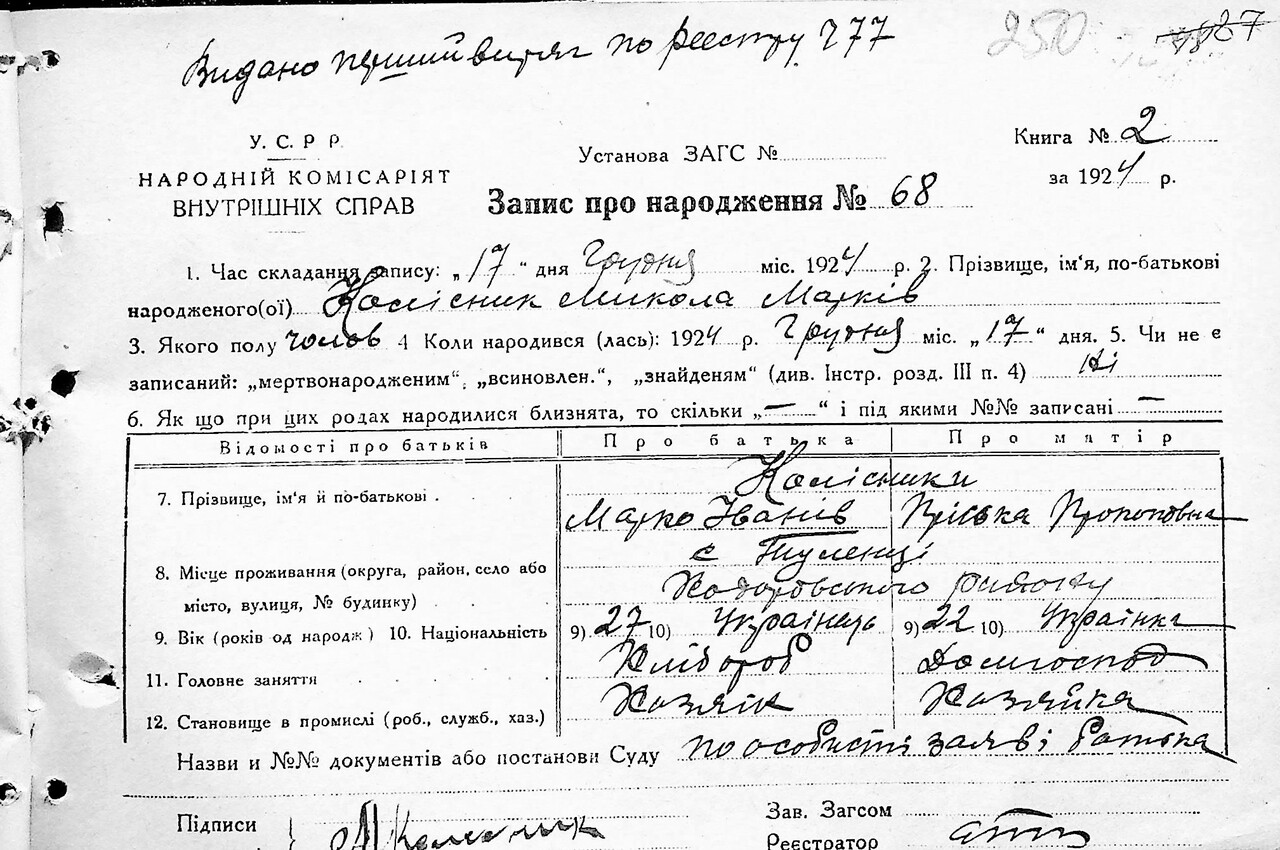 Видано перший витяг по реєстру ч 77
250
У. С. Р Р.
НАРОДНІЙ КОМІСАРІЯТ
ВНУТРІШНІХ СПРАВ
Установа ЗАГС №
Книга № 2
за 1924 р.
Запис про народження № 68
1. Час складання запису: „17" дня Грудня міс. 1924 р. 2. Прізвище, ім'я, по-батькові
народженого(ої) Колісник Микола Марків
3. Якого полу чолов 4 Коли народився (лась): 1924 р. Грудня міс. „17" дня. 5. Чи не є
записаний: „мертвонародженим", „всиновлен.", „знайденям" (див. Інстр. розд. III п. 4) Ні
6. Як що при цих родах народилися близнята, то скільки „—" і під якими №№ записані —
Відомості про батьків Про батька Про матір
7. Прізвище, ім'я й по-батькові . Колісники
Марко Іванів Пріська Прокоповна
8. Місце проживання (округа, район, село або
місто, вулиця, № будинку) с Туленці
Ходоровського району
9. Вік (років од народж) 10. Національність 9) 27 10) Українець 9) 22 10) Українка
11. Головне заняття Хлібороб Домгоспод
12. Становище в промислі (роб., служб., хаз.) Хозяїк Хозяйка
Назви и №№ документів або постанови Суду по особисті заяві батька
Підписи Колесник
Зав. Загсом
Реєстратор